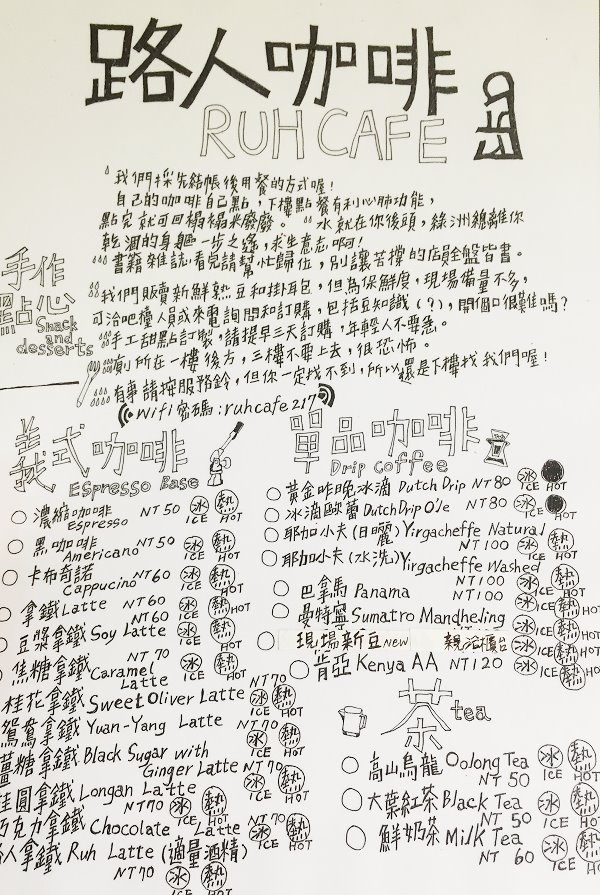 路人咖啡
RUH CAFE
我們採先結帳後用餐的方式喔!
自己的咖啡自己點,下樓點餐有利心肺功能,
點完就可回榻榻米廢廢。 水就在你後頭,綠洲總離你
乾涸的身軀一步之緣,求生意志啊!
書籍雜誌看完請幫忙歸位,別讓苦撐的店員全盤皆書。
我們販賣新鮮熟豆和掛耳包,但為保鮮度,現場備量不多,
可洽吧檯人員或來電詢問和訂購,包括豆知識(?),開個口很難嗎?
手工甜點訂製,請提早三天訂購,年輕人不要急。
廁所在一樓後方,三樓不要上去,很恐怖。
有事請按服務鈴,但你一定找不到,所以還是下樓找我們喔!
Wifi密碼:ruhcafe217
手作
點心
Snack
and
desserts
義式咖啡
Espresso Base
濃縮咖啡 NT50 冰 熱
Espresso ICE HOT
黑咖啡 NT50 冰 熱
Americano ICE HOT
卡布奇諾 冰 熱
Cappucino NT60 ICE HOT
拿鐵 Latte NT60 冰 熱
NT60 ICE HOT
豆漿拿鐵 Soy Latte 冰 熱
NT70 ICE HOT
焦糖拿鐵 Caramel 冰 熱
Latte NT70 ICE HOT
桂花拿鐵 Sweet Oliver Latte 冰 熱
NT70 ICE HOT
鴛鴦拿鐵 Yuan-Yang Latte 冰 熱
ICE HOT
薑糖拿鐵 Black Sugar with 冰 熱
Ginger Latte NT70 ICE HOT
桂圓拿鐵 Longan Latte 冰 熱
NT70 ICE HOT
巧克力拿鐵 Chocolate Latte NT70 冰 熱
ICE HOT
路人拿鐵 Ruh Latte (適量酒精)
NT70 冰 熱
單品咖啡
Drip Coffee
黃金昨晚冰滴 Dutch Drip NT80 冰
ICE HOT
冰滴歐蕾 Dutch Drip O'le NT80 冰
ICE HOT
耶加小夫(日曬) Yirgacheffe Natural
NT100 冰 熱
ICE HOT
耶加小夫(水洗) Yirgacheffe Washed
NT100 冰 熱
ICE HOT
巴拿馬 Panama NT100 冰 熱
ICE HOT
曼特寧 Sumatro Mandheling
冰 熱
ICE HOT
現場新豆 NEW 親洽櫃台 冰 熱
ICE HOT
肯亞 Kenya AA NT120 冰 熱
ICE HOT
茶 tea
高山烏龍 Oolong Tea 冰 熱
NT 50 ICE HOT
大葉紅茶 Black Tea 冰 熱
NT 50 ICE HOT
鮮奶茶 Milk Tea 冰 熱
NT 60 ICE HOT